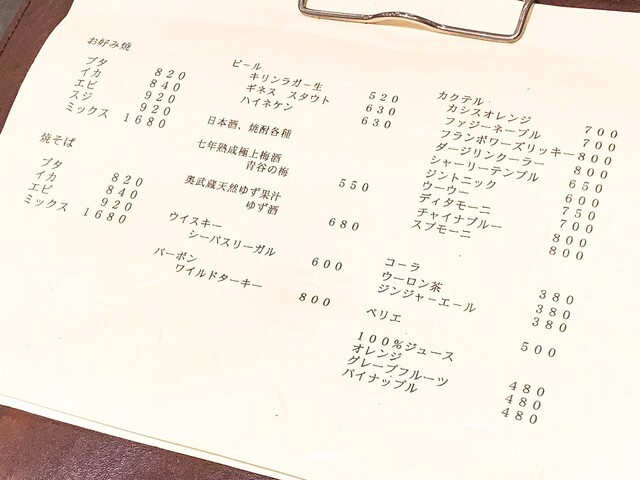 お好み焼
ブタ 820
イカ 840
エビ 920
スジ 920
ミックス 1680
焼そば
ブタ 820
イカ 840
エビ 920
ミックス 1680
ビール
キリンラガー生 520
ギネス スタウト 630
ハイネケン 630
日本酒、焼酎各種
七年熟成極上梅酒
青谷の梅 550
奥武蔵天然ゆず果汁
ゆず酒 680
ウイスキー
シーバスリーガル 600
バーボン
ワイルドターキー 800
カクテル
カシスオレンジ 700
ファジーネーブル 700
フランボワーズリッキー 800
ダージリンクーラー 800
シャーリーテンプル 650
ジントニック 600
ウーウー 750
ディタモーニ 700
チャイナブルー 800
スプモーニ 800
コーラ 380
ウーロン茶 380
ジンジャーエール 380
ペリエ 500
100%ジュース
オレンジ 480
グレープフルーツ 480
パイナップル 480